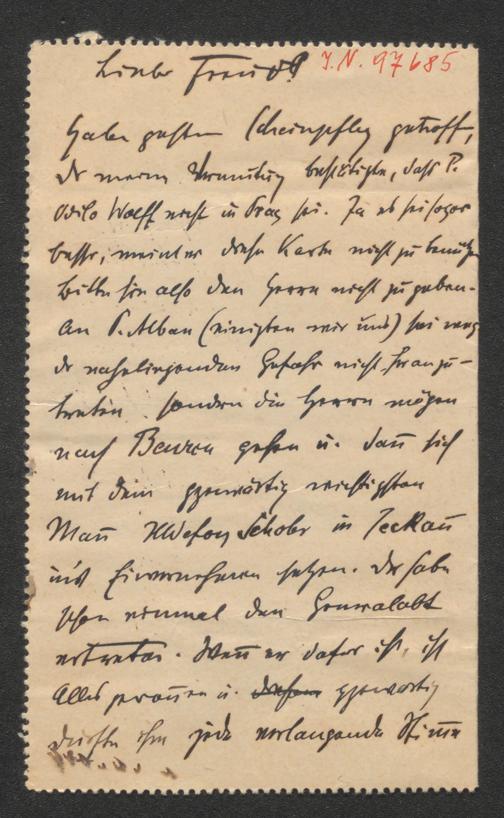 Lieber Freund! J.N. 97685
Habe gestern Scheinpflug getroffen,
der meine Vermutung bestätigte, dass P.
Odilo Wolff nicht in Prag sei. Ja es sei sogar
besser, meinte er diese Karte nicht zu benützen
bitte sie also den Herrn nicht zu geben.
An P. Alban (einigten wir uns) sei wegen
der naheliegenden Gefahr nicht heranzu-
treten sondern die Herrn mögen
nach Beuron gehen u. dan̄ sich
mit dem gegenwärtig wichtigsten
Man̄ Ildefons Schober in Seckau
ins Einvernehmen setzen. Der habe
schon einmal den Generalabt
vertreten. Wen̄ er dafür ist, ist
Alles gewon̄en u. gegenwärtig
dürfte ihm jede verlangende Stim̄e